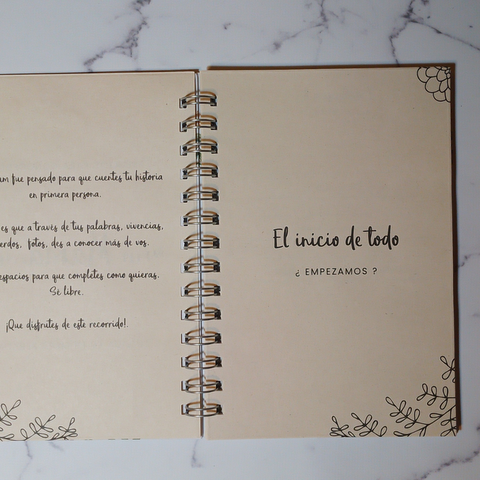 um fue pensado para que cuentes tu historia
en primera persona.
es que a través de tus palabras, vivencias,
erdos, fotos, des a conocer más de vos.
espacios para que completes como quieras.
Sé libre.
¡Que disfrutes de este recorrido!.
El inicio de todo
¿ EMPEZAMOS ?